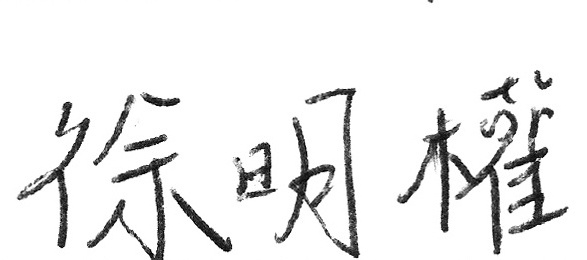 徐明權